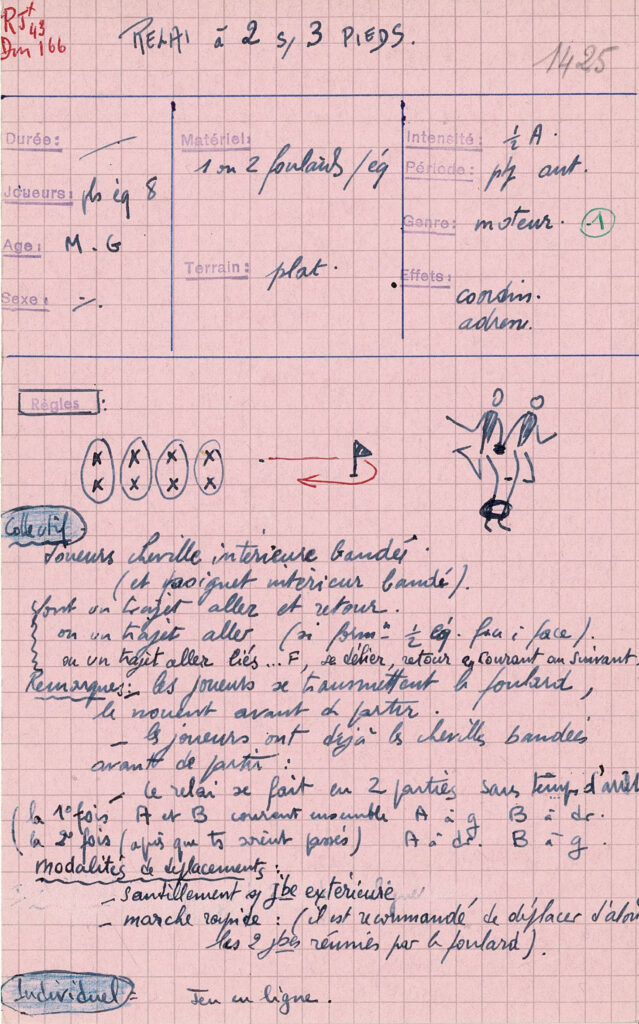 RJ+ 43
Dm 166
RELAI à 2 s/ 3 PIEDS.
1425
Durée:
Joueurs: pls éq 8
Age: M. G
Sexe:
Matériel:
1 ou 2 foulards / éq
Terrain: plat.
Intensité: ½ A.
Période: aut.
Genre: moteur. 1
Effets:
coordin.
adres.
Règles :
Collectif
Joueurs cheville intérieure bandée.
(et poignet intérieur bandé).
font un trajet aller et retour.
ou un trajet aller (si form°n ½ éq. face à face).
ou un trajet aller liés ... F, se délier, retour en courant au suivant.
Remarques: les joueurs se transmettent le foulard,
le nouent avant de partir.
- les joueurs ont déjà les chevilles bandées
avant de partir :
- le relai se fait en 2 parties sans temps d'arrêt
(la 1° fois A et B courent ensemble A à g B à dr.
(la 2° fois (après que ts soient passés) A à dr. B à g.
modalités de déplacements:
- sautillement s/ jbe extérieure
- marche rapide : (il est recommandé de déplacer d'abord
les 2 jbes réunies par le foulard).
Individuel = Jeu en ligne.